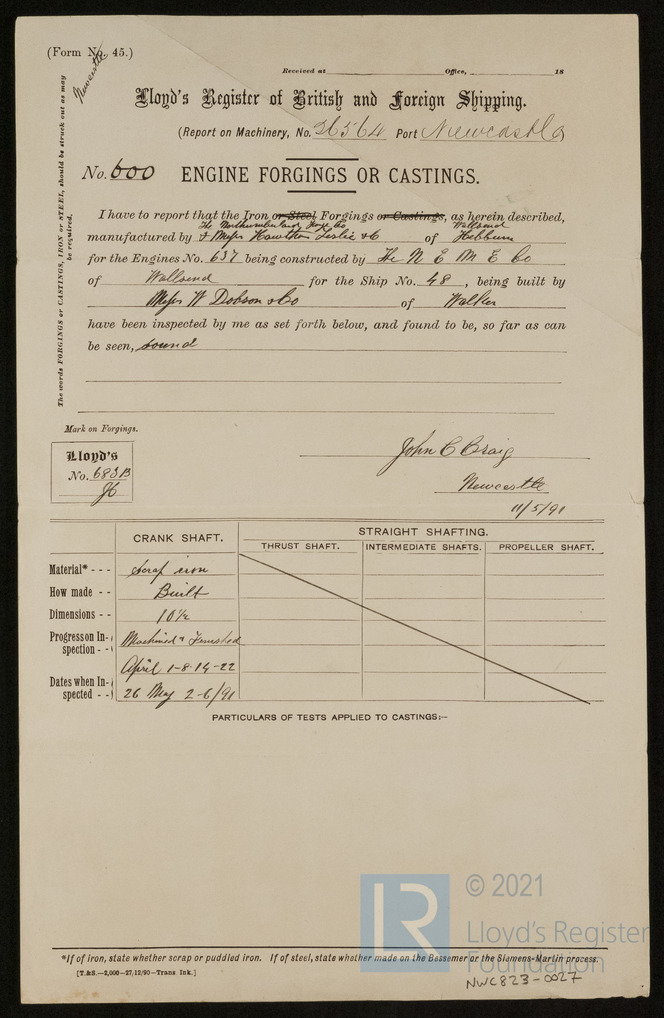 (Form No. 45.)
Newcastle
Received at Office, 18
Lloyd's Register of British and Foreign Shipping.
(Report on Machinery, No. 26564 Port Newcastle
No. 600 ENGINE FORGINGS OR CASTINGS.
The words FORGINGS or CASTINGS, IRON or STEEL, should be struck out as may
be required.
I have to report that the Iron or Steel Forgings or Castings, as herein described,
The Northumberland Forge Co Wallsend
manufactured by & Messrs Hawthorn Leslie & Co of Hebburn
for the Engines No. 637 being constructed by The N E M E Co
of Wallsend for the Ship No. 48, being built by
Messrs W Dobson & Co of Walker
have been inspected by me as set forth below, and found to be, so far as can
be seen, sound
Mark on Forgings.
Lloyd's
No. 683B
John C Craig
Newcastle
11/5/91
CRANK SHAFT. STRAIGHT SHAFTING.
THRUST SHAFT. INTERMEDIATE SHAFTS. PROPELLER SHAFT.
Material* - - - Scrap iron
How made - - Built
Dimensions - - 10½
Progress on In-
spection - - Machined & Finished
Dates when In-
spected - - April 1-8-14-22
26 May 2-6/91
PARTICULARS OF TESTS APPLIED TO CASTINGS:—
*If of iron, state whether scrap or puddled iron. If of steel, state whether made on the Bessemer or the Siemens-Martin process.
[T.&S.—2,000—27/12/90—Trans. Ink.]
LR
© 2021
Lloyd's Register
Foundation
NWC823-0027